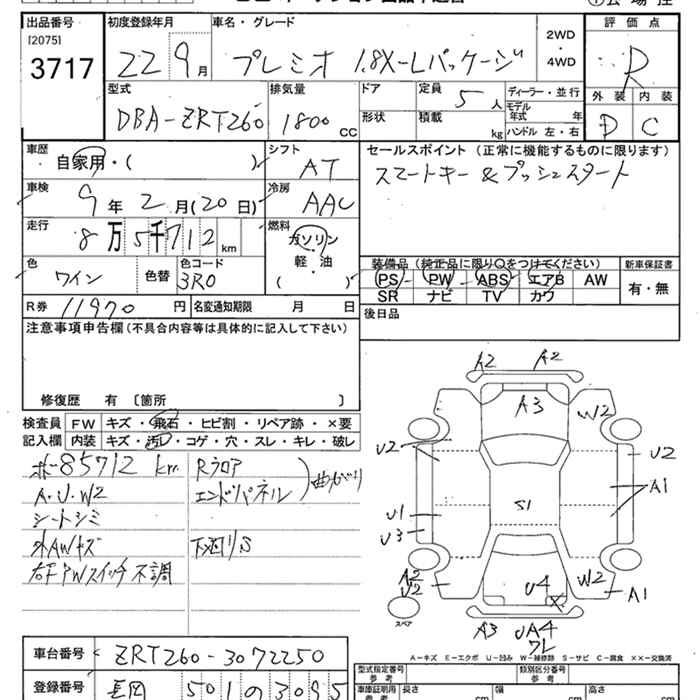 出品番号 初度登録年月 車名・グレード 評価点
[2075]
3717 22 9月 プレミオ 1.8X-Lパッケージ 2WD・4WD R
型式 排気量 ドア 定員 5人 ディーラー・並行 外装 内装
モデル年式 年
DBA-ZRT260 1800cc 形状 積載 kg ハンドル 左・右 D C
車歴 自家用・( ) シフト AT セールスポイント (正常に機能するものに限ります)
スマートキー&プッシュスタート
車検 9年2月(20日) 冷房 AAC
走行 8万5千712km 燃料 ガソリン
軽・油
( )
色 ワイン 色替 色コード 3R0
装備品 (純正品に限り○をつけてください) 新車保証書
PS PW ABS エアB AW 有・無
SR ナビ TV カワ
R券 11970円 名変通知期限 月 日
後日品
注意事項申告欄(不具合内容等は具体的に記入して下さい)
修復歴 有 [箇所 ]
検査員 FW キズ・飛石・ヒビ割・リペア跡・×要
記入欄 内装 キズ・汚レ・コゲ・穴・スレ・キレ・破レ
85712 km Rフロア
A・U・W2 エンドパネル 曲がり
シートシミ
外AWキズ 下廻りS
右F PWスイッチ不調
A2 A2
A3 W2
U2 U2
A1
U1 S1
U3
A2 U2 U4 W2
A1
スペア
A3 UA4
ワレ
A-キズ E-エクボ U-凹み W-補修跡 S-サビ C-腐食 ××-交換済
車台番号 ZRT260-3072250
型式指定番号 参考 類別区分番号 参考
登録番号 長岡 501の3095
車庫証明用 参考 長さ cm 幅 cm 高さ cm